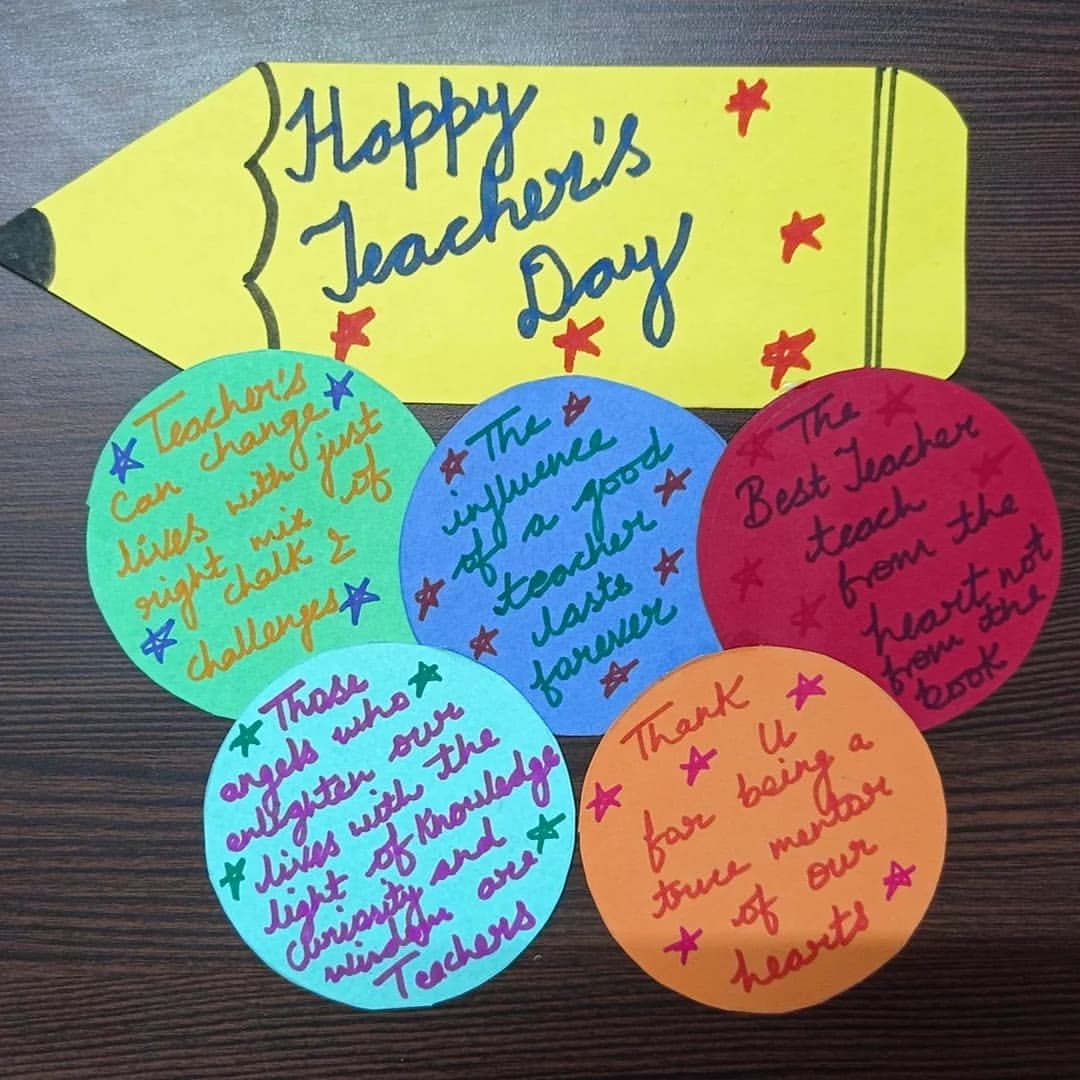 Happy
Teacher's
Day
Teacher's
change
Can
lives with just
right mix of
chalk &
challenges
The
influence
of a good
teacher
lasts
forever
The
Best Teacher
teach
from the
heart not
from the
book
Those
angels who
enlighten our
lives with the
light of Knowledge
Curiosity and
wisdom are
Teachers
Thank
U
for being a
true mentor
of our
hearts